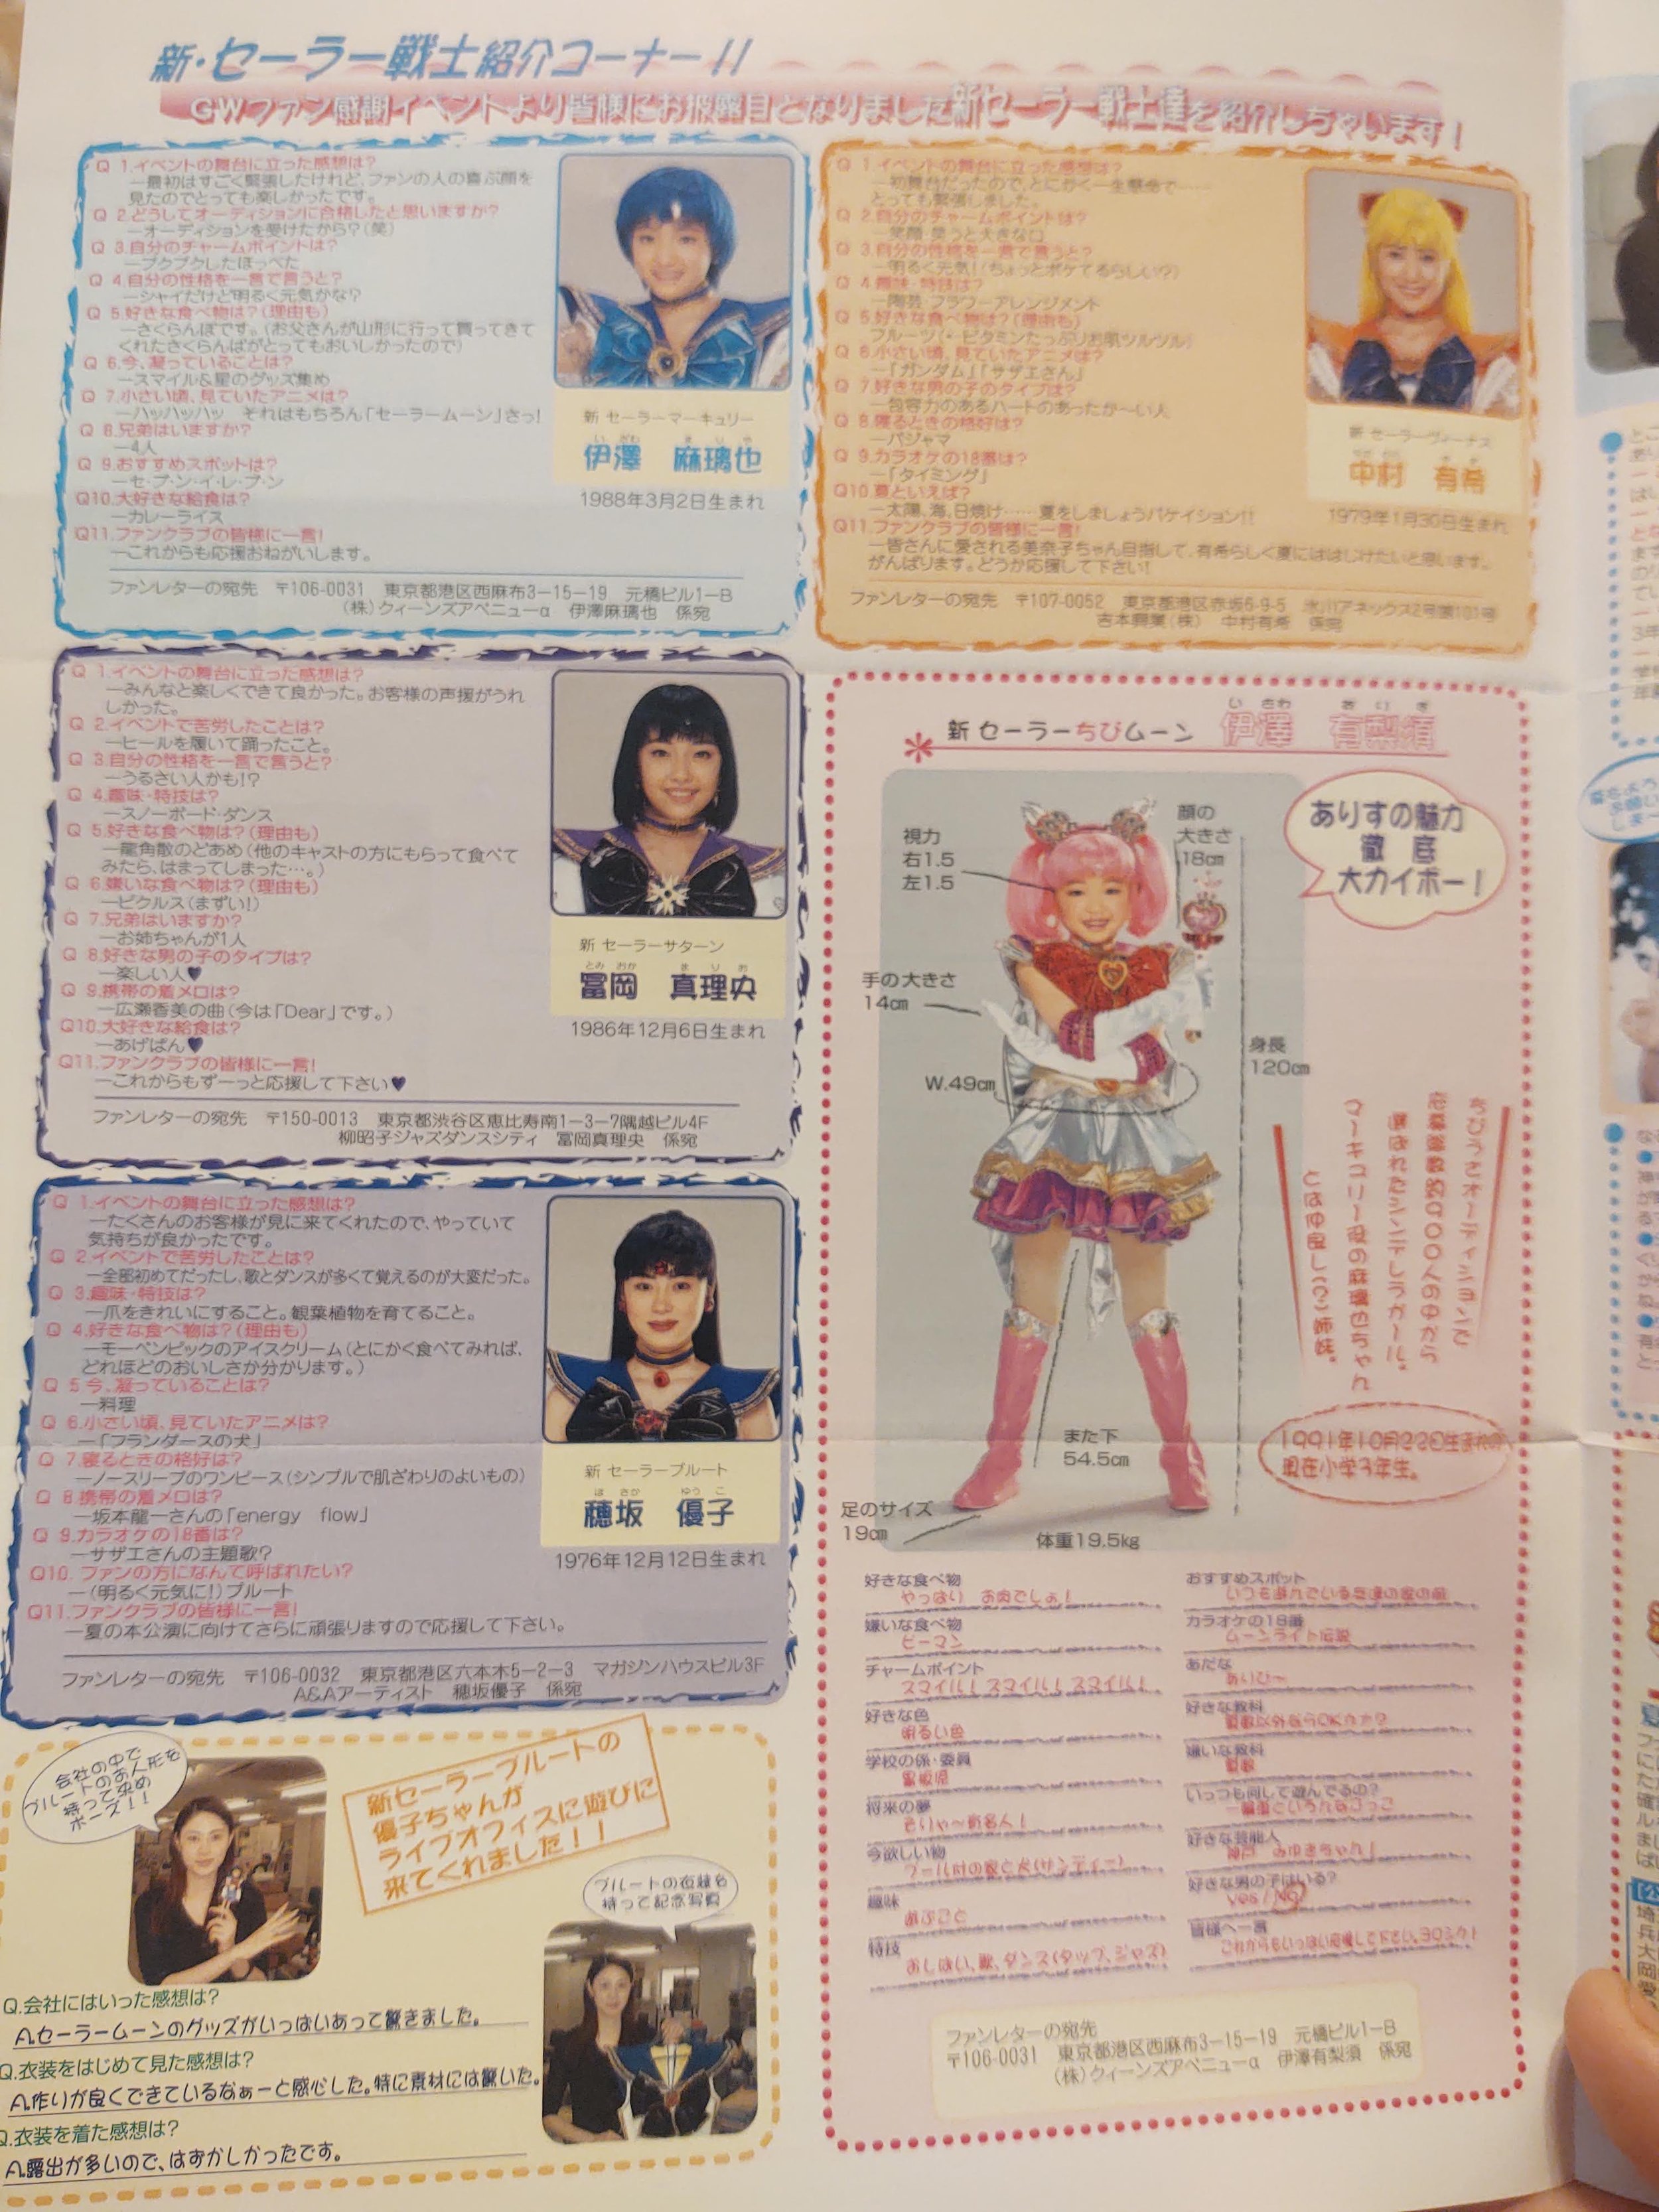 新・セーラー戦士紹介コーナー!!
GWファン感謝イベントより皆様にお披露目となりました新セーラー戦士達を紹介しちゃいます!
Q 1.イベントの舞台に立った感想は?
―最初はすごく緊張したけれど、ファンの人の喜ぶ顔を
見たのでとっても楽しかったです。
Q 2.どうしてオーディションに合格したと思いますか?
―オーディションを受けたから?(笑)
Q 3.自分のチャームポイントは?
―プクプクしたほっぺた
Q 4.自分の性格を一言で言うと?
―シャイだけど明るく元気かな?
Q 5.好きな食べ物は?(理由も)
―さくらんぼです。(お父さんが山形に行って買ってきて
くれたさくらんぼがとってもおいしかったので)
Q 6.今、凝っていることは?
―スマイル&星のグッズ集め
Q 7.小さい頃、見ていたアニメは?
―ハッハッハッ それはもちろん「セーラームーン」さっ!
Q 8.兄弟はいますか?
―4人
Q 9.おすすめスポットは?
―セ・ブ・ン・イ・レ・ブ・ン
Q10.大好きな給食は?
―カレーライス
Q11.ファンクラブの皆様に一言!
―これからも応援おねがいします。
新 セーラーマーキュリー
いざわ まりや
伊澤 麻璃也
1988年3月2日生まれ
ファンレターの宛先 〒106-0031 東京都港区西麻布3-15-19 元橋ビル1-B
(株)クィーンズアベニューα 伊澤麻璃也 係宛
Q 1.イベントの舞台に立った感想は?
―初舞台だったので、とにかく一生懸命で……
とっても緊張しました。
Q 2.自分のチャームポイントは?
―笑顔 笑うと大きな口
Q 3.自分の性格を一言で言うと?
―明るく元気!(ちょっとボケてるらしい?)
Q 4.趣味・特技は?
―陶芸 フラワーアレンジメント
Q 5.好きな食べ物は?(理由も)
フルーツ(・ビタミンたっぷりお肌ツルツル)
Q 6.小さい頃、見ていたアニメは?
―「ガンダム」「サザエさん」
Q 7.好きな男の子のタイプは?
―包容力のあるハートのあったか〜い人
Q 8.寝るときの格好は?
―パジャマ
Q 9.カラオケの18番は?
―「タイミング」
Q10.夏といえば?
―太陽、海、日焼け……夏をしましょうバケイション!!
Q11.ファンクラブの皆様に一言!
―皆さんに愛される美奈子ちゃん目指して、有希らしく夏にはじけたいと思います。
がんばります。どうか応援して下さい!
新 セーラーヴィーナス
中村 有希
1979年1月30日生まれ
ファンレターの宛先 〒107-0052 東京都港区赤坂6-9-5 氷川アネックス2号館101号
吉本興業(株) 中村有希 係宛
Q 1.イベントの舞台に立った感想は?
―みんなと楽しくできて良かった。お客様の声援がうれ
しかった。
Q 2.イベントで苦労したことは?
―ヒールを履いて踊ったこと。
Q 3.自分の性格を一言で言うと?
―うるさい人かも!?
Q 4.趣味・特技は?
―スノーボード・ダンス
Q 5.好きな食べ物は?(理由も)
―龍角散のどあめ(他のキャストの方にもらって食べて
みたら、はまってしまった…。)
Q 6.嫌いな食べ物は?(理由も)
―ピクルス(まずい!)
Q 7.兄弟はいますか?
―お姉ちゃんが1人
Q 8.好きな男の子のタイプは?
―楽しい人♥
Q 9.携帯の着メロは?
―広瀬香美の曲(今は「Dear」です。)
Q10.大好きな給食は?
―あげぱん♥
Q11.ファンクラブの皆様に一言!
―これからもずーっと応援して下さい♥
新 セーラーサターン
とみおか まりお
冨岡 真理央
1986年12月6日生まれ
ファンレターの宛先 〒150-0013 東京都渋谷区恵比寿南1-3-7隅越ビル4F
柳昭子ジャズダンスシティ 冨岡真理央 係宛
新 セーラーちびムーン
いさわ ありす
伊澤 有梨須
ありすの魅力
徹底
大カイボー!
視力
右1.5
左1.5
顔の
大きさ
18cm
手の大きさ
14cm
W.49cm
身長
120cm
また下
54.5cm
足のサイズ
19cm
体重19.5kg
ちびうさオーディションで
応募総数約900人の中から
選ばれたシンデレラガール。
マーキュリー役の麻璃也ちゃん
とは仲良し(?)姉妹。
1991年10月22日生まれの
現在小学3年生。
好きな食べ物
やっぱり お肉でしょ!
嫌いな食べ物
ピーマン
チャームポイント
スマイル! スマイル! スマイル!
好きな色
明るい色
学校の係・委員
黒板係
将来の夢
そりゃ〜有名人!
今欲しい物
プール付の家と犬(サンディー)
趣味
あそぶこと
特技
おしばい、歌、ダンス(タップ、ジャズ)
おすすめスポット
いつも遊んでいる友達の家の前
カラオケの18番
ムーンライト伝説
あだな
ありひ〜
好きな教科
算数以外ならOKかな?
嫌いな教科
算数
いっつも何して遊んでるの?
一輪車といろんなごっこ
好きな芸能人
神戸 みゆきちゃん!
好きな男の子はいる?
Yes / No
皆様へ一言
これからもいっぱい応援して下さい。ヨロシク!
ファンレターの宛先
〒106-0031 東京都港区西麻布3-15-19 元橋ビル1-B
(株)クィーンズアベニューα 伊澤有梨須 係宛
Q 1.イベントの舞台に立った感想は?
―たくさんのお客様が見に来てくれたので、やっていて
気持ちが良かったです。
Q 2.イベントで苦労したことは?
―全部初めてだったし、歌とダンスが多くて覚えるのが大変だった。
Q 3.趣味・特技は?
―爪をきれいにすること。観葉植物を育てること。
Q 4.好きな食べ物は?(理由も)
―モーベンピックのアイスクリーム(とにかく食べてみれば、
どれほどのおいしさか分かります。)
Q 5 今、凝っていることは?
―料理
Q 6.小さい頃、見ていたアニメは?
―「フランダースの犬」
Q 7.寝るときの格好は?
―ノースリーブのワンピース(シンプルで肌ざわりのよいもの)
Q 8.携帯の着メロは?
―坂本龍一さんの「energy flow」
Q 9.カラオケの18番は?
―サザエさんの主題歌?
Q10. ファンの方になんて呼ばれたい?
―(明るく元気に!)プルート
Q11.ファンクラブの皆様に一言!
―夏の本公演に向けてさらに頑張りますので応援して下さい。
新 セーラープルート
ほさか ゆうこ
穂坂 優子
1976年12月12日生まれ
ファンレターの宛先 〒106-0032 東京都港区六本木5-2-3 マガジンハウスビル3F
A&Aアーティスト 穂坂優子 係宛
会社の中で
プルートのお人形を
持って決め
ポーズ!!
新セーラープルートの
優子ちゃんが
ライブオフィスに遊びに
来てくれました!!
プルートの衣装を
持って記念写真
Q.会社にはいった感想は?
A.セーラームーンのグッズがいっぱいあって驚きました。
Q.衣装をはじめて見た感想は?
A.作りが良くできているなぁーと感心した。特に素材には驚いた。
Q.衣装を着た感想は?
A.露出が多いので、はずかしかったです。